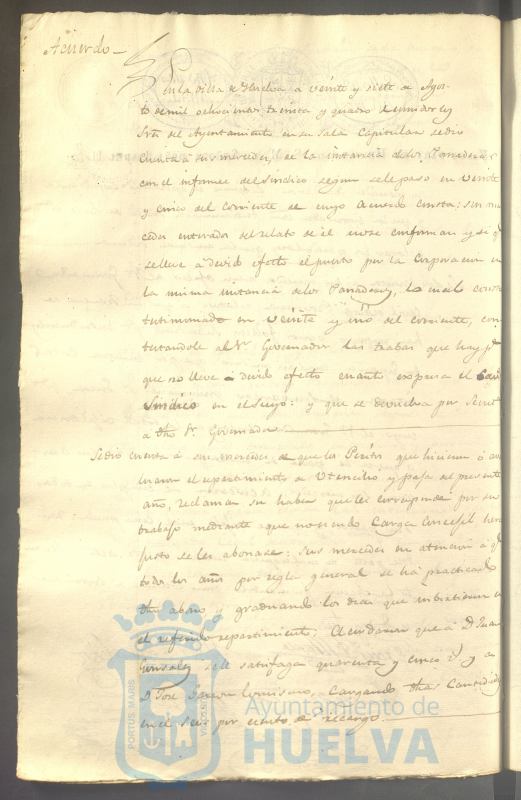 Acuerdo
En la villa de Huelva a veinte y siete de Agos-
to de mil ochocientos treinta y quatro reunidos los
Sres del Ayuntamiento en su Sala Capitular se dio
cuenta a sus mercedes, de la instancia de los Panaderos
con el informe del Sindico segun se le paso en veinte
y cinco del corriente de cuyo Acuerdo consta: sus mer-
cedes enterados del relato de él se conforman y
se lleve a devido efecto el puesto por la Corporacion en
la misma instancia de los Panaderos, lo cual consta
testimoniado en veinte y uno del corriente,
al Sr. Governador las trabas que hay pa
que no lleve a devido efecto cuanto expresa el
Sindico en el suyo: y que se devuelva por Secret
a dho Sr. Governador
Se dio cuenta a sus mercedes de que los Peritos que hicieron
el repartimiento de Utencilio y Paja del presente
año, reclaman su haber que les corresponde por su
trabajo mediante que no siendo Carga Concejil
justo se les abonase: sus mercedes en atencion a qe
todos los años por regla general se ha practicado
dho abono y graduando los dias que invirtieron en
el referido repartimiento; Acordaron que a D. Juan
Gonzalez se le satisfaga quarenta y cinco rs y a
D. Jose Garcon lo mismo, Cargando dhas Cantidades
en el seis por ciento de recargo.
PORTUS MARIS
Ayuntamiento de
HUELVA